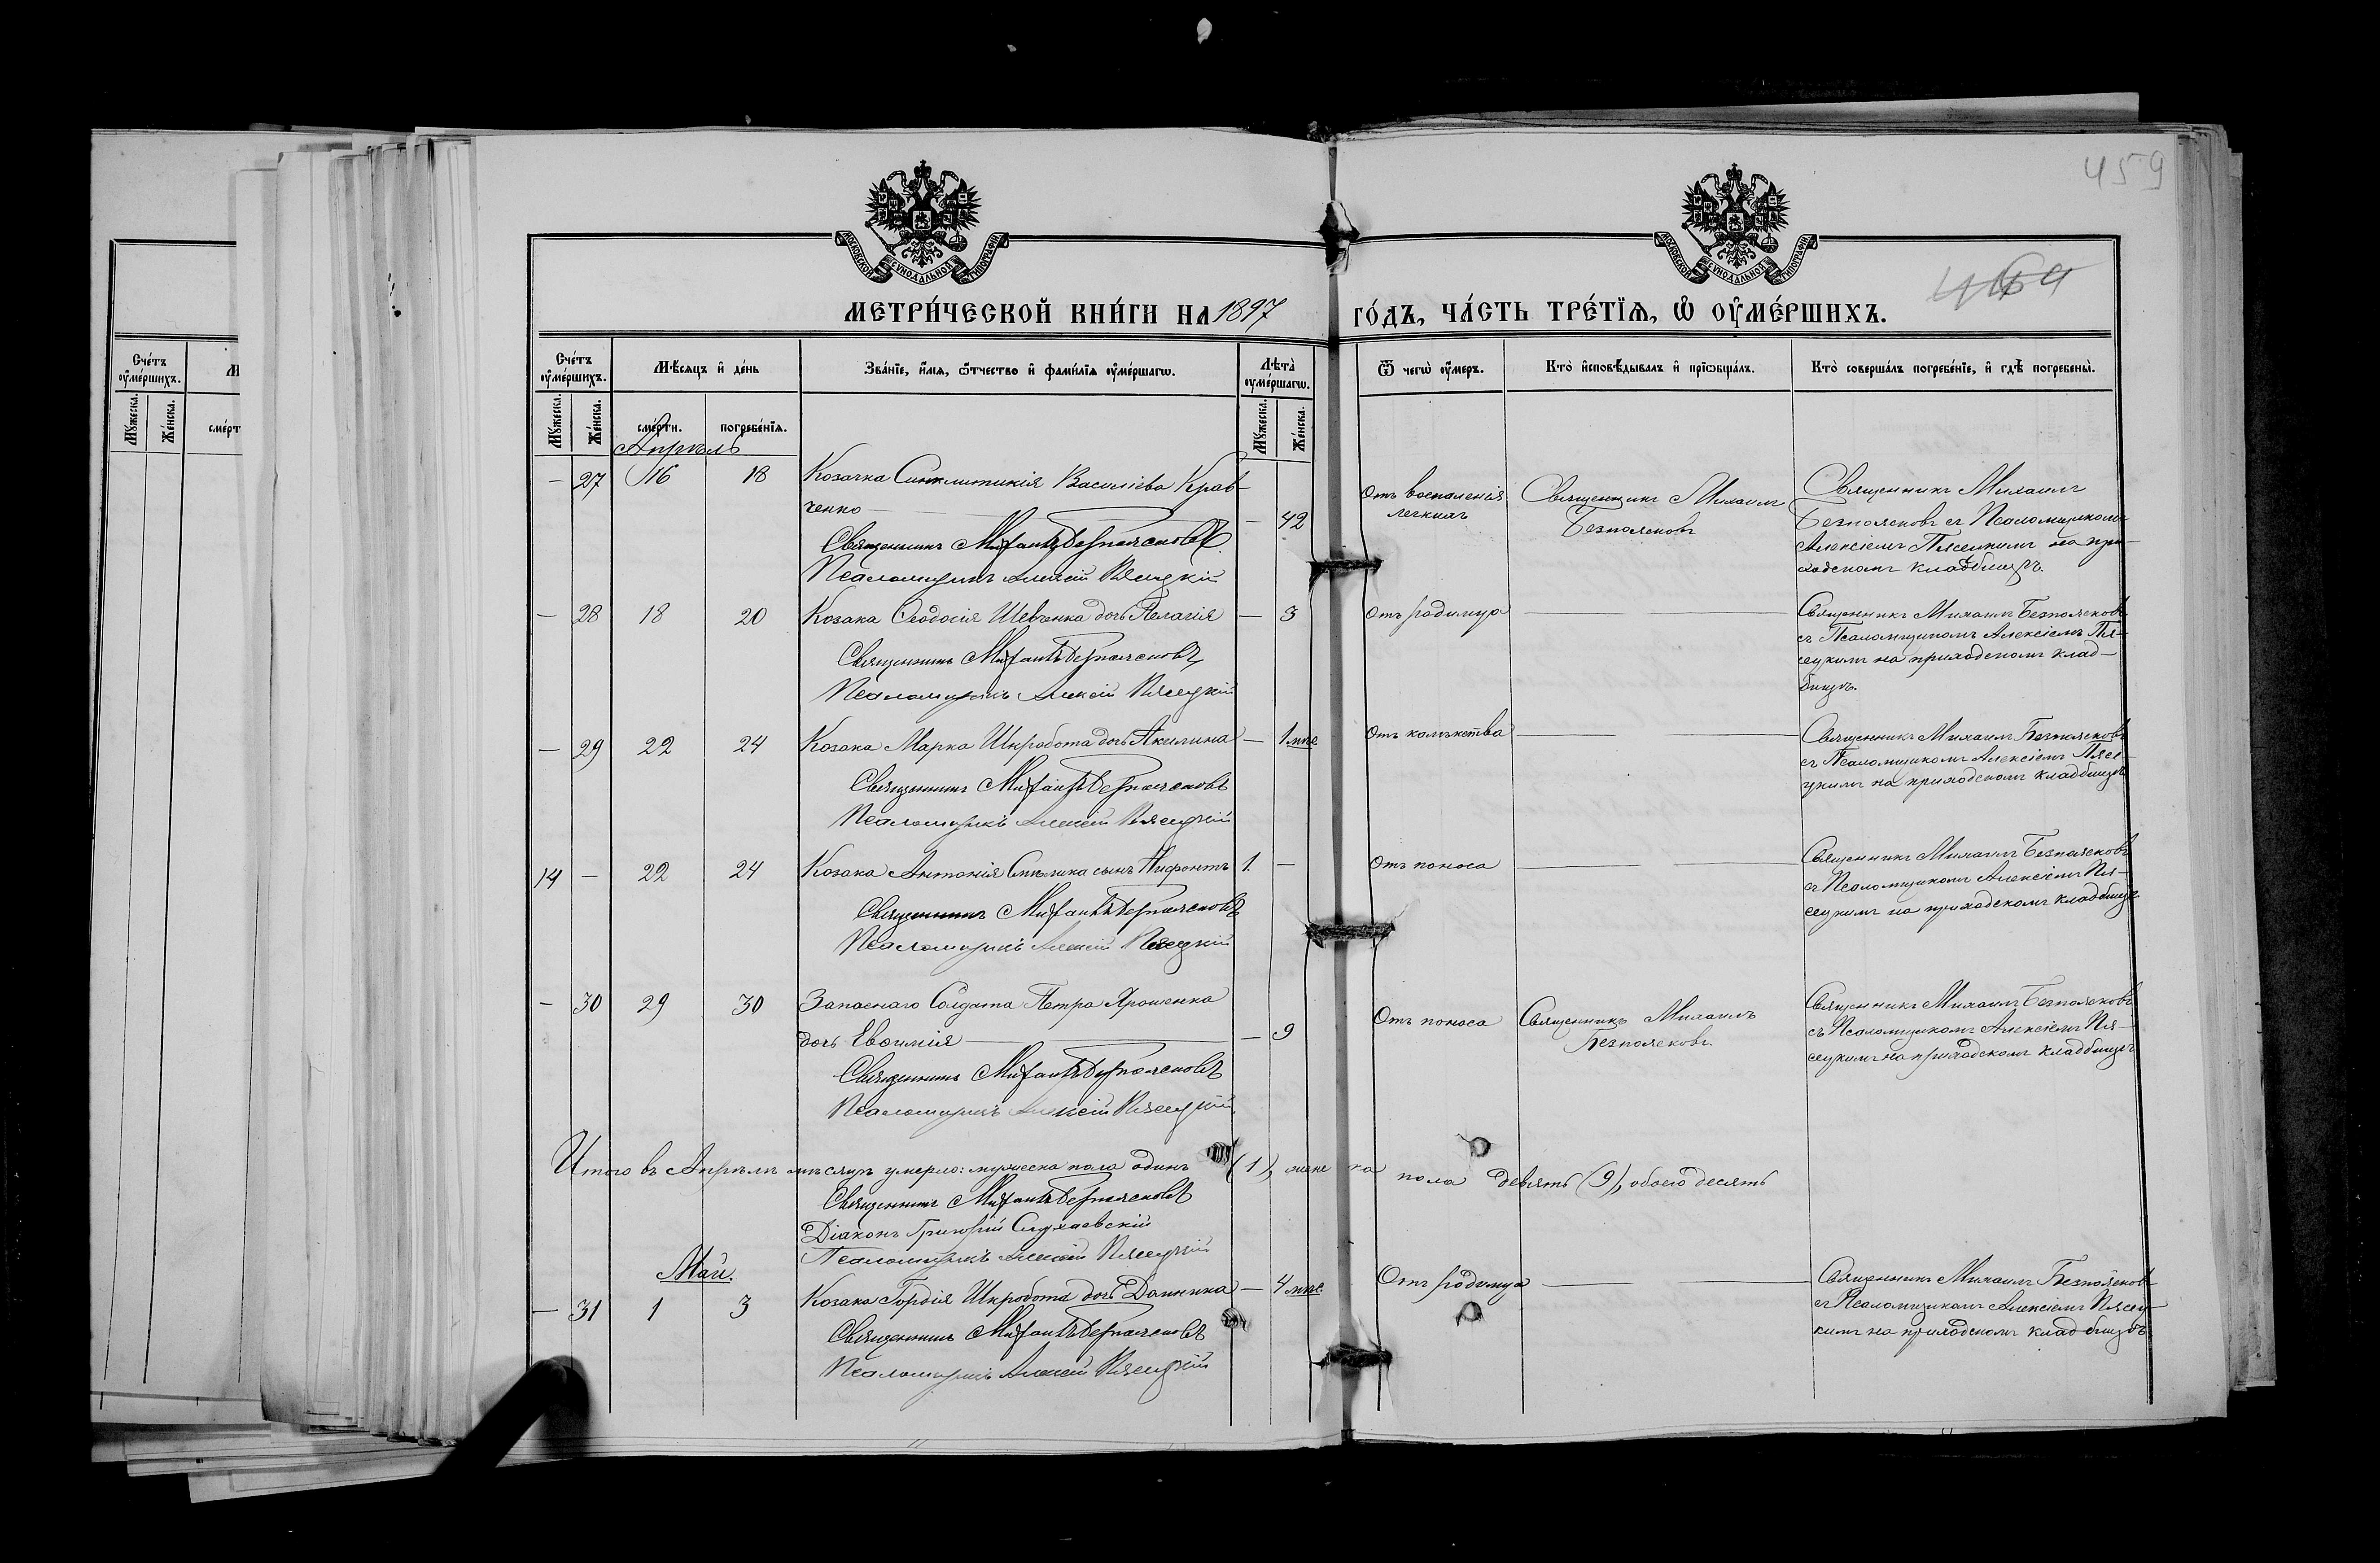 459
464
МОСКОВСКОЙ СУНОДАЛЬНОЙ ТИПОГРАФІИ
МОСКОВСКОЙ СУНОДАЛЬНОЙ ТИПОГРАФІИ
МЕТРИ́ЧЕСКОЙ КНИ́ГИ НА 1897 ГО́ДЪ, ЧА́СТЬ ТРЕ́ТЇѦ, Ѽ ОУМЕ́РШИХЪ.
Сче́тъ оумершихъ.
Мꙋжеска.
Же́нска.
Мѣсяцъ и де́нь
сме́рти.
погребе́нїѧ.
Зва́нїе, и́мѧ, ѻ́тчество и фами́лїѧ оуме́ршагѡ.
Лѣта̀ оуме́ршагѡ.
Мꙋжеска.
Же́нска.
Ѿ чегѡ̀ оу́меръ.
Кто̀ исповѣ́дывалъ и прїѡбща́лъ.
Кто̀ соверша́лъ погребе́нїе, и гдѣ̀ погребены̀.
Сче́тъ
оумершихъ.
Мꙋжеска.
Же́нска.
М
смерт
Апрѣль
— 27 16 18 Козачка Синклитикія Васильева Крав-
ченко — 42
Священникъ Михаилъ Безпоясковъ
Псаломщикъ Алексій Пясецкій
Отъ воспаленія
легкихъ
Священникъ Михаилъ
Безпоясковъ
Священникъ Михаилъ
Безпоясковъ съ Псаломщикомъ
Алексіемъ Пясецкимъ на при-
ходскомъ кладбищѣ.
— 28 18 20 Козака Ѳеодосія Шевченка дочь Пелагія — 3
Священникъ Михаилъ Безпоясковъ
Псаломщикъ Алексій Пясецкій
Отъ родимца
Священникъ Михаилъ Безпоясковъ
съ Псаломщикомъ Алексіемъ Пя-
сецкимъ на приходскомъ клад-
бищѣ.
— 29 22 24 Козака Марка Шкробота дочь Акилина — 1 мѣс
Священникъ Михаилъ Безпоясковъ
Псаломщикъ Алексій Пясецкій
Отъ калѣкства
Священникъ Михаилъ Безпоясковъ
съ Псаломщикомъ Алексіемъ Пясе-
цкимъ на приходскомъ кладбищѣ
14 — 22 24 Козака Антонія сынъ Нифонтъ 1. —
Священникъ Михаилъ Безпоясковъ
Псаломщикъ Алексій Пясецкій
Отъ поноса
Священникъ Михаилъ Безпоясковъ
съ Псаломщикомъ Алексіемъ Пя-
сецкимъ на приходскомъ кладбищѣ
— 30 29 30 Запаснаго Солдата Петра Ярошенка
дочь Евѳимія — 9
Священникъ Михаилъ Безпоясковъ
Псаломщикъ Алексій Пясецкій
Отъ поноса
Священникъ Михаилъ
Безпоясковъ.
Священникъ Михаилъ Безпоясковъ
съ Псаломщикомъ Алексіемъ Пя-
сецкимъ на приходскомъ кладбищѣ
Итого въ Апрѣлѣ мѣсяцѣ умерло: мужеска пола одинъ (1), женска пола девять (9), обоего десять
Священникъ Михаилъ Безпоясковъ
Діаконъ Григорій
Псаломщикъ Алексій Пясецкій
Май.
— 31 1 3 Козака Гордія Шкробота дочь Домника — 4 мѣс
Священникъ Михаилъ Безпоясковъ
Псаломщикъ Алексій Пясецкій
Отъ родимца
Священникъ Михаилъ Безпоясков
съ Псаломщикомъ Алексіемъ Пясец-
кимъ на приходскомъ кладбищѣ